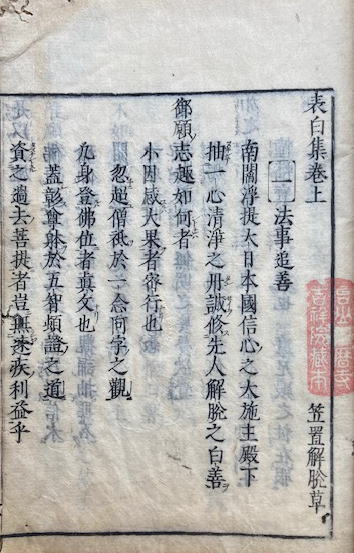 表白集卷上
笠置解脱草
吉祥院藏本
一 法事追善
南閻浮提大日本國信心之大施主殿下
抽一心清淨之丹誠修先人解脱之白善
御願志趣如何者
小因感大果者密行也
忽超僧祇於一念阿字之觀
凢身登佛位者真文也
盖彰尊躰於五智頓證之道
資之過去菩提者豈無速疾利益乎